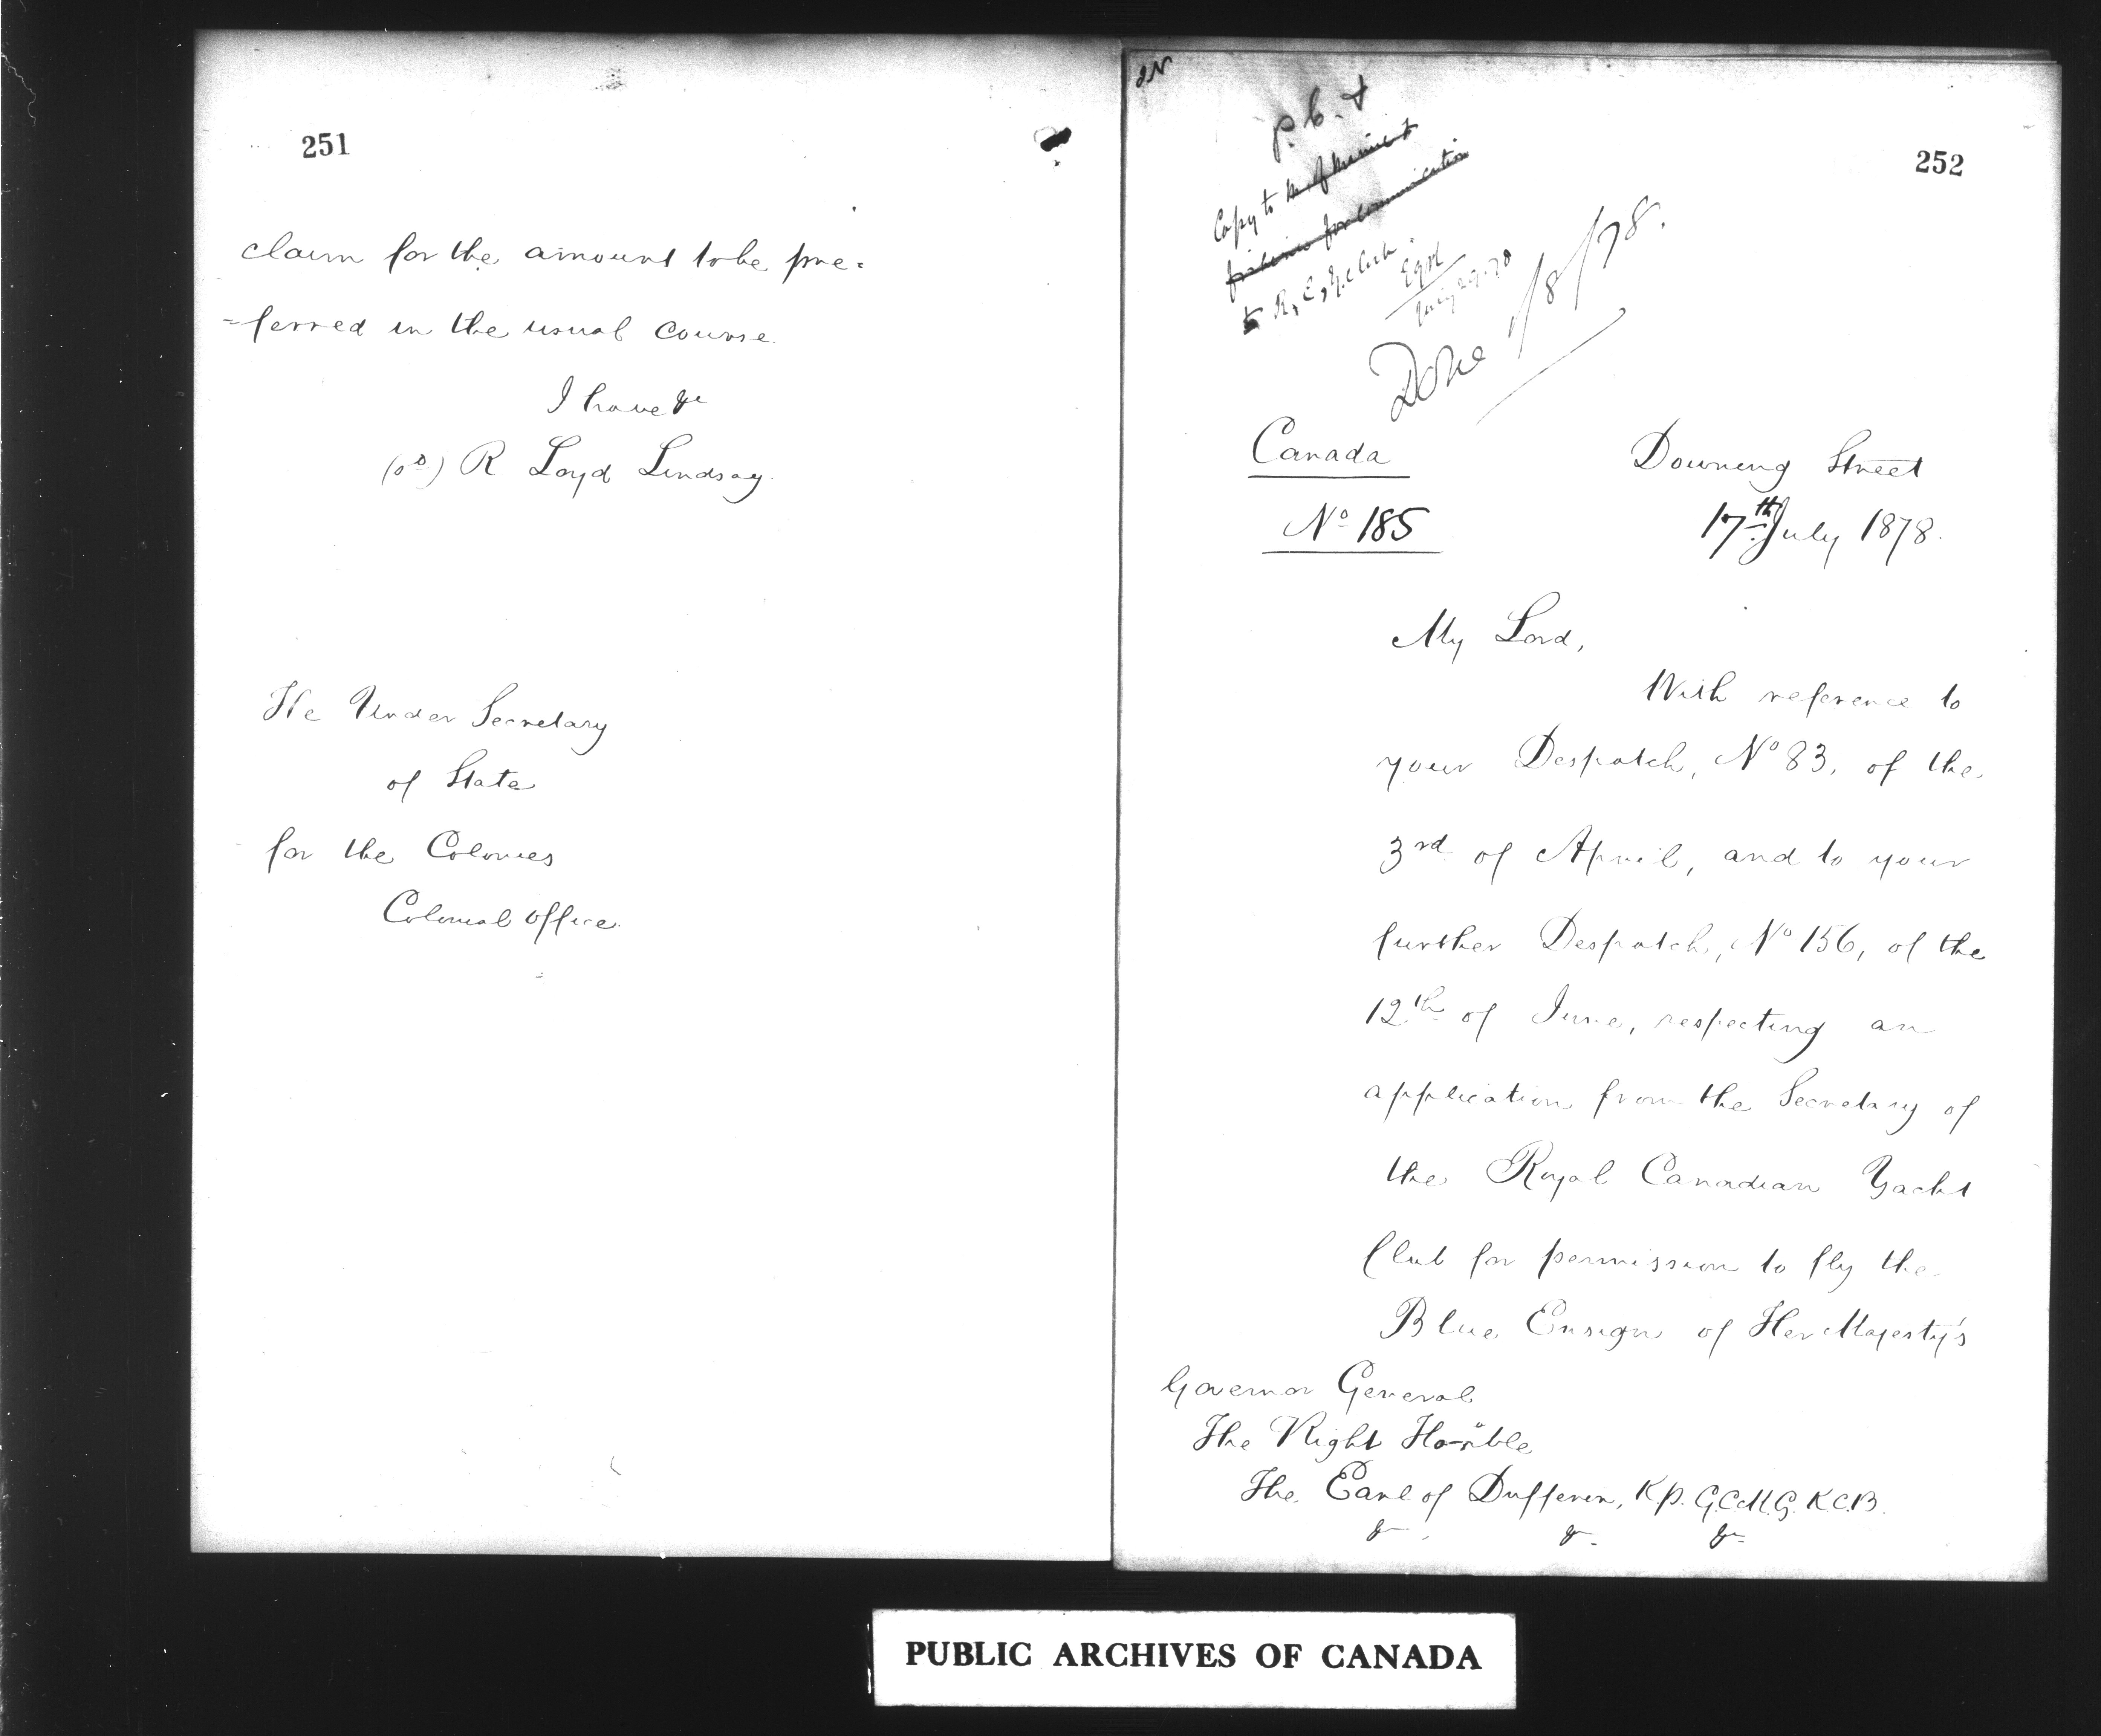 251
claim for the amount to be pre=
=ferred in the usual course.
I have &c
(sd) R Loyd Lindsay.
The Under Secretary
of State
for the Colonies
Colonial Office.
252
P.C. &
Copy to
for communication
to R. C. Y. Club
July 29. 78
Done 1/8/78.
Canada
No 185
Downing Street
17th July 1878.
My Lord,
With reference to
your Despatch, No 83, of the
3rd of April, and to your
further Despatch, No 156, of the
12th of June, respecting an
application from the Secretary of
the Royal Canadian Yacht
Club for permission to fly the
Blue Ensign of Her Majesty's
Governor General
The Right Honble
The Earl of Dufferin, K.P. G.C.M.G. K.C.B.
&c. &c. &c.
PUBLIC ARCHIVES OF CANADA